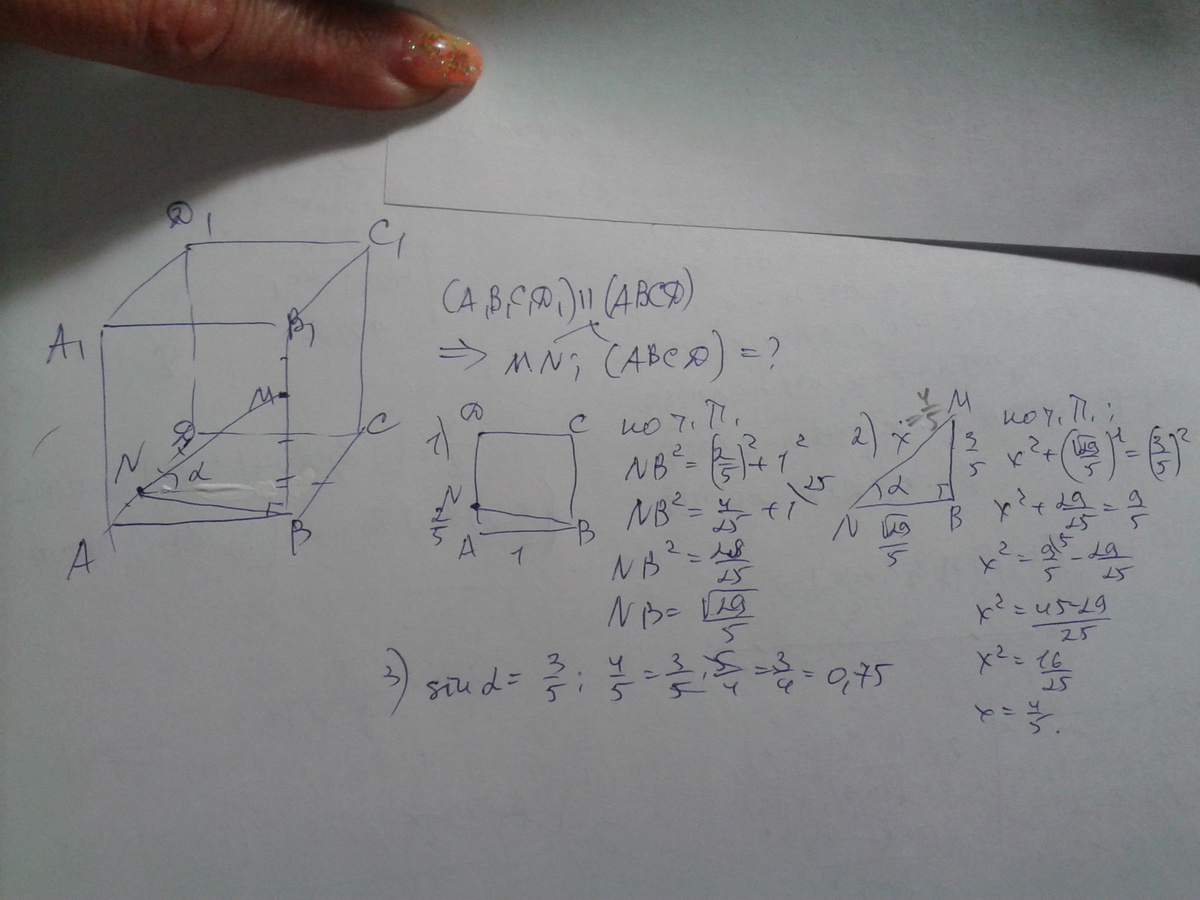 D₁
C₁
A₁
B₁
M
D
C
N
x
α
A
B
(A₁B₁C₁D₁) || (ABCD)
=> MN; (ABCD) = ?
1)
D
C
N
2/5
A
1
B
по т. П.
NB² = (2/5)² + 1²
NB² = 4/25 + 1\25
NB² = 29/25
NB = √29/5
2)
x
4/5
M
3/5
α
N
B
√29/5
по т. П.;
x² + (√29/5)² = (3/5)²
x² + 29/25 = 9/5
x² = 9\5/5 - 29/25
x² = 45-29/25
x² = 16/25
x = 4/5.
3) sin α = 3/5 : 4/5 = 3/5 · 5/4 = 3/4 = 0,75